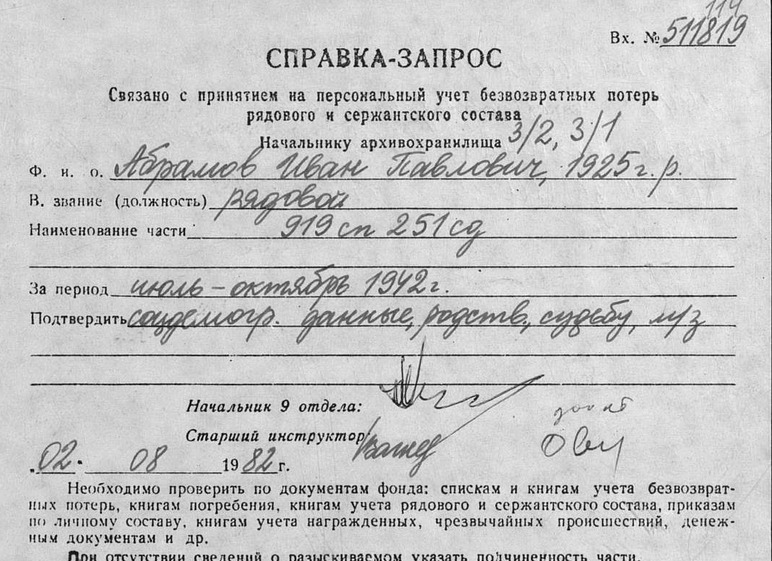 114
Вх. № 511819
СПРАВКА-ЗАПРОС
Связано с принятием на персональный учет безвозвратных потерь
рядового и сержантского состава
Начальнику архивохранилища 3/2, 3/1
Ф. и. о. Абрамов Иван Павлович, 1925 г. р.
В. звание (должность) рядовой
Наименование части 919 сп 251 сд
За период июль – октябрь 1942 г.
Подтвердить соцдемогр. данные, родств, судьбу, м/з
Начальник 9 отдела:
Старший инструктор
02. 08 1982 г.
Необходимо проверить по документам фонда: спискам и книгам учета безвозврат-
ных потерь, книгам погребения, книгам учета рядового и сержантского состава, приказам
по личному составу, книгам учета награжденных, чрезвычайных происшествий, денеж-
ным документам и др.
При отсутствии сведений о разыскиваемом указать подчиненность части.